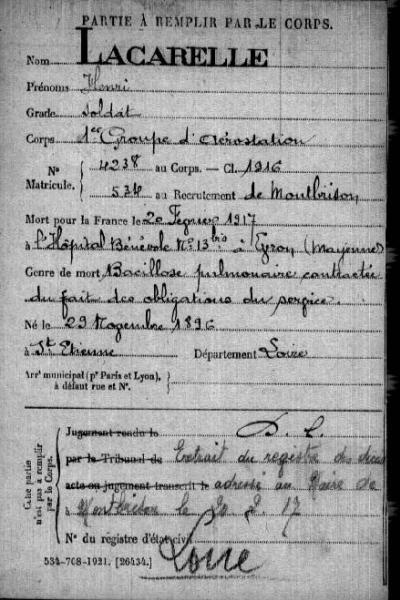 PARTIE À REMPLIR PAR LE CORPS.
Nom LACARELLE
Prénoms Henri
Grade Soldat
Corps 1er Groupe d'Aérostation
N° Matricule. 4238 au Corps. — Cl. 1916
534 au Recrutement de Montbrison
Mort pour la France le 20 Février 1917
à l'Hôpital Bénévole N° 13 bis à Evron (Mayenne)
Genre de mort Bacillose pulmonaire contractée
du fait des obligations du service.
Né le 29 Novembre 1896
à St Etienne Département Loire
Arrt municipal (pr Paris et Lyon),
à défaut rue et N°.
Cette partie n'est pas à remplir par le Corps.
Jugement rendu le D. C.
par le Tribunal de Extrait du registre des décès
acte ou jugement transcrit le adressé au Maire de
à Montbrison le 20 2 17
N° du registre d'état civil
534-708-1921. [26434.] Loire